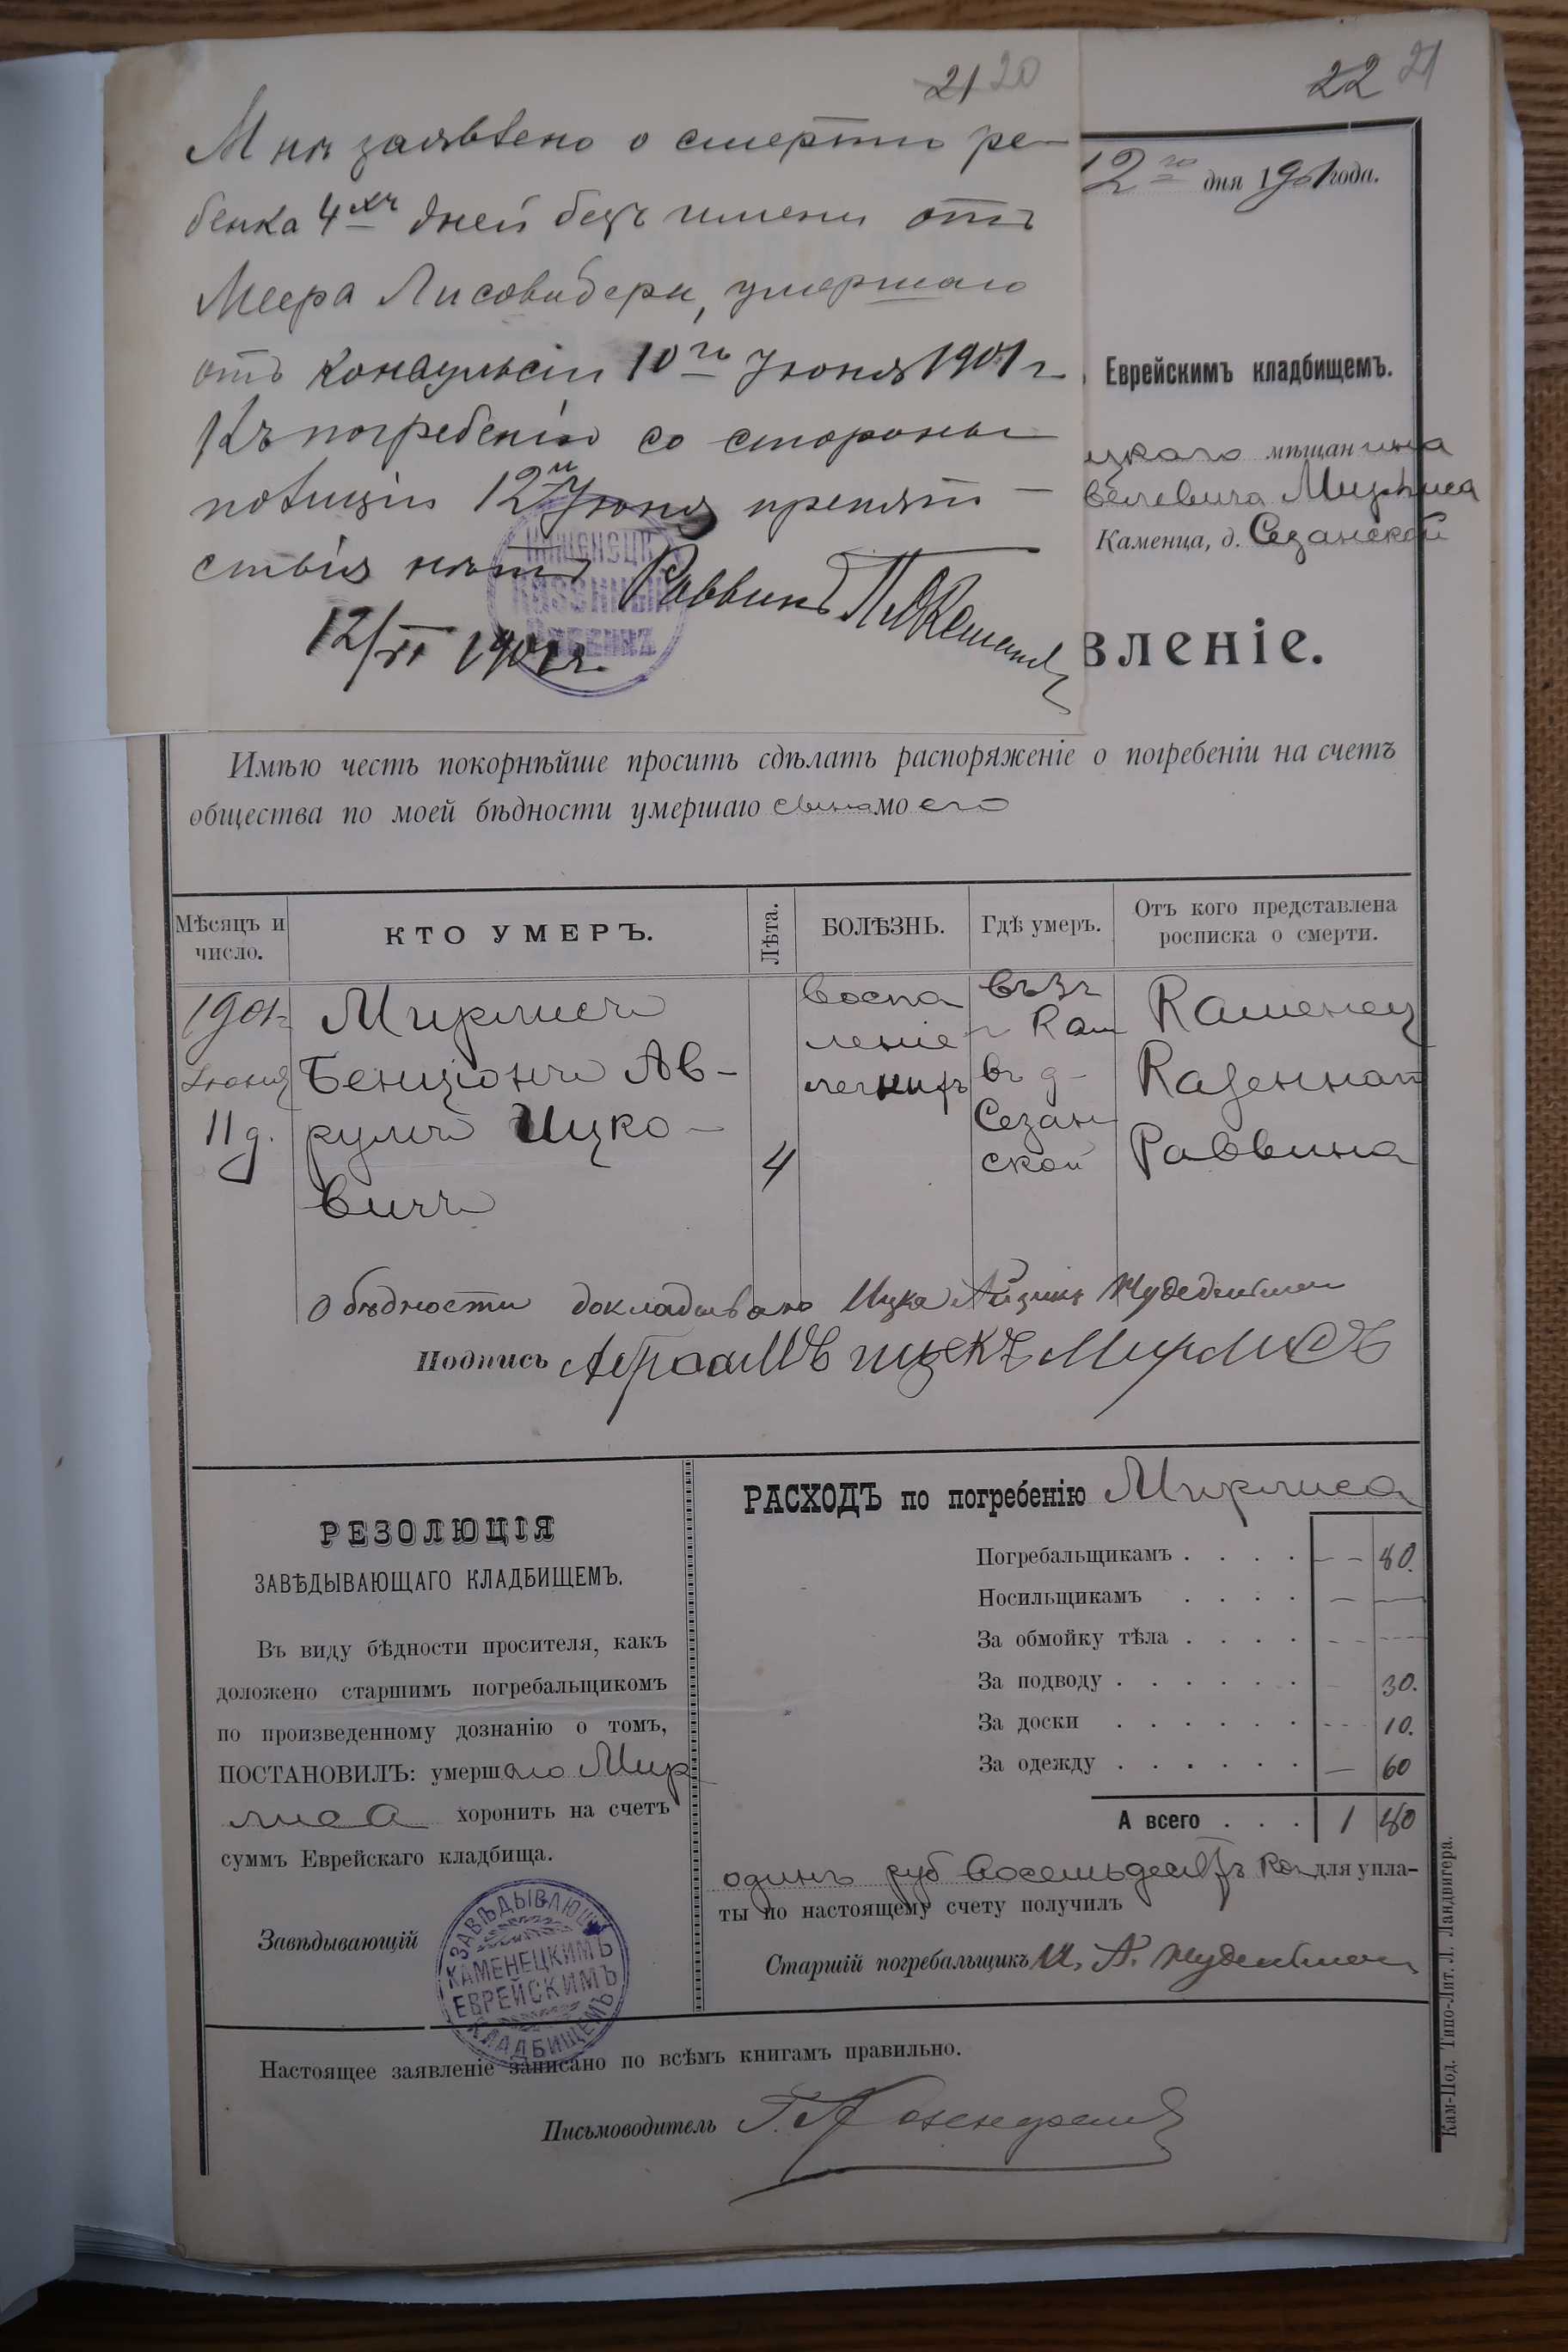 21 20
Мнѣ заявлено о смерти ре-
бенка 4хъ дней безъ имени отъ
Меера Лисовибери, умершаго
отъ конвульсіи 10го Іюня 1901 г
Къ погребенію со стороны
полиціи 12го Іюня препят-
ствія нѣтъ Раввинъ
12/VI 1901 г.
КАМЕНЕЦК
КАЗЕННЫЙ
РАВВИНЪ
22 21
12го дня 1901 года.
Еврейскимъ кладбищемъ.
цкаго мѣщанина
велевича Мирмиса
Каменца, д. Сезанской
вленіе.
Имѣю честь покорнѣйше просить сдѣлать распоряженіе о погребеніи на счетъ
общества по моей бѣдности умершаго сына моего
Мѣсяцъ и число. КТО УМЕРЪ. Лѣта. БОЛѢЗНЬ. Гдѣ умеръ. Отъ кого представлена росписка о смерти.
1901 Мирмисъ воспа въ Каменец
Іюня Бенціонъ Ав- леніе Кам Казеннаго
11 д. румъ Ицко- легкихъ въ д. Раввина
вичъ 4 Сезан
ской
О бѣдности докладываю Ицко Айзикъ
Подпись Абраамъ ицекъ Мирмисъ
РЕЗОЛЮЦІЯ
ЗАВѢДЫВАЮЩАГО КЛАДБИЩЕМЪ.
Въ виду бѣдности просителя, какъ
доложено старшимъ погребальщикомъ
по произведенному дознанію о томъ,
ПОСТАНОВИЛЪ: умершаго Мир
миса хоронить на счетъ
суммъ Еврейскаго кладбища.
Завѣдывающій
ЗАВѢДЫВАЮЩІЙ
КАМЕНЕЦКИМЪ
ЕВРЕЙСКИМЪ
КЛАДБИЩЕМЪ
РАСХОДЪ по погребенію Мирмиса
Погребальщикамъ . . . . — — 80.
Носильщикамъ . . . . — —
За обмойку тѣла . . . . - - ---
За подводу . . . . . . - 30.
За доски . . . . . . --- 10.
За одежду . . . . . . — 60
А всего . . . 1 80
одинъ руб восемьдесятъ коп для упла-
ты по настоящему счету получилъ
Старшій погребальщикъ И. А.
Настоящее заявленіе записано по всѣмъ книгамъ правильно.
Письмоводитель
Кам-Под. Типо-Лит. Л. Ландвигера.